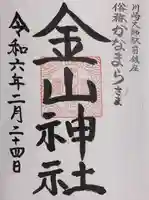 川崎大師駅前鎮座
俗称かなまらさま
金山神社
令和六年二月二十四日